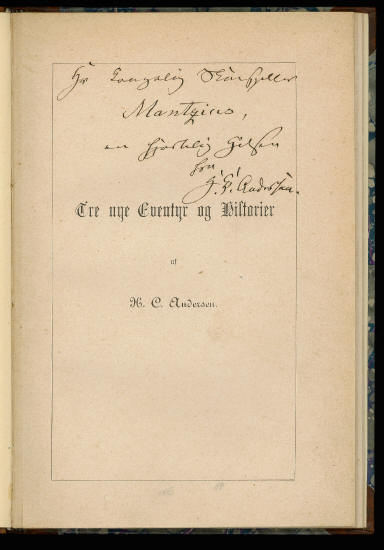 Hr Kongelig Skuespiller
Mantzius,
en hjertelig Hilsen
fra
H. C. Andersen.
Tre nye Eventyr og Historier
af
H. C. Andersen.